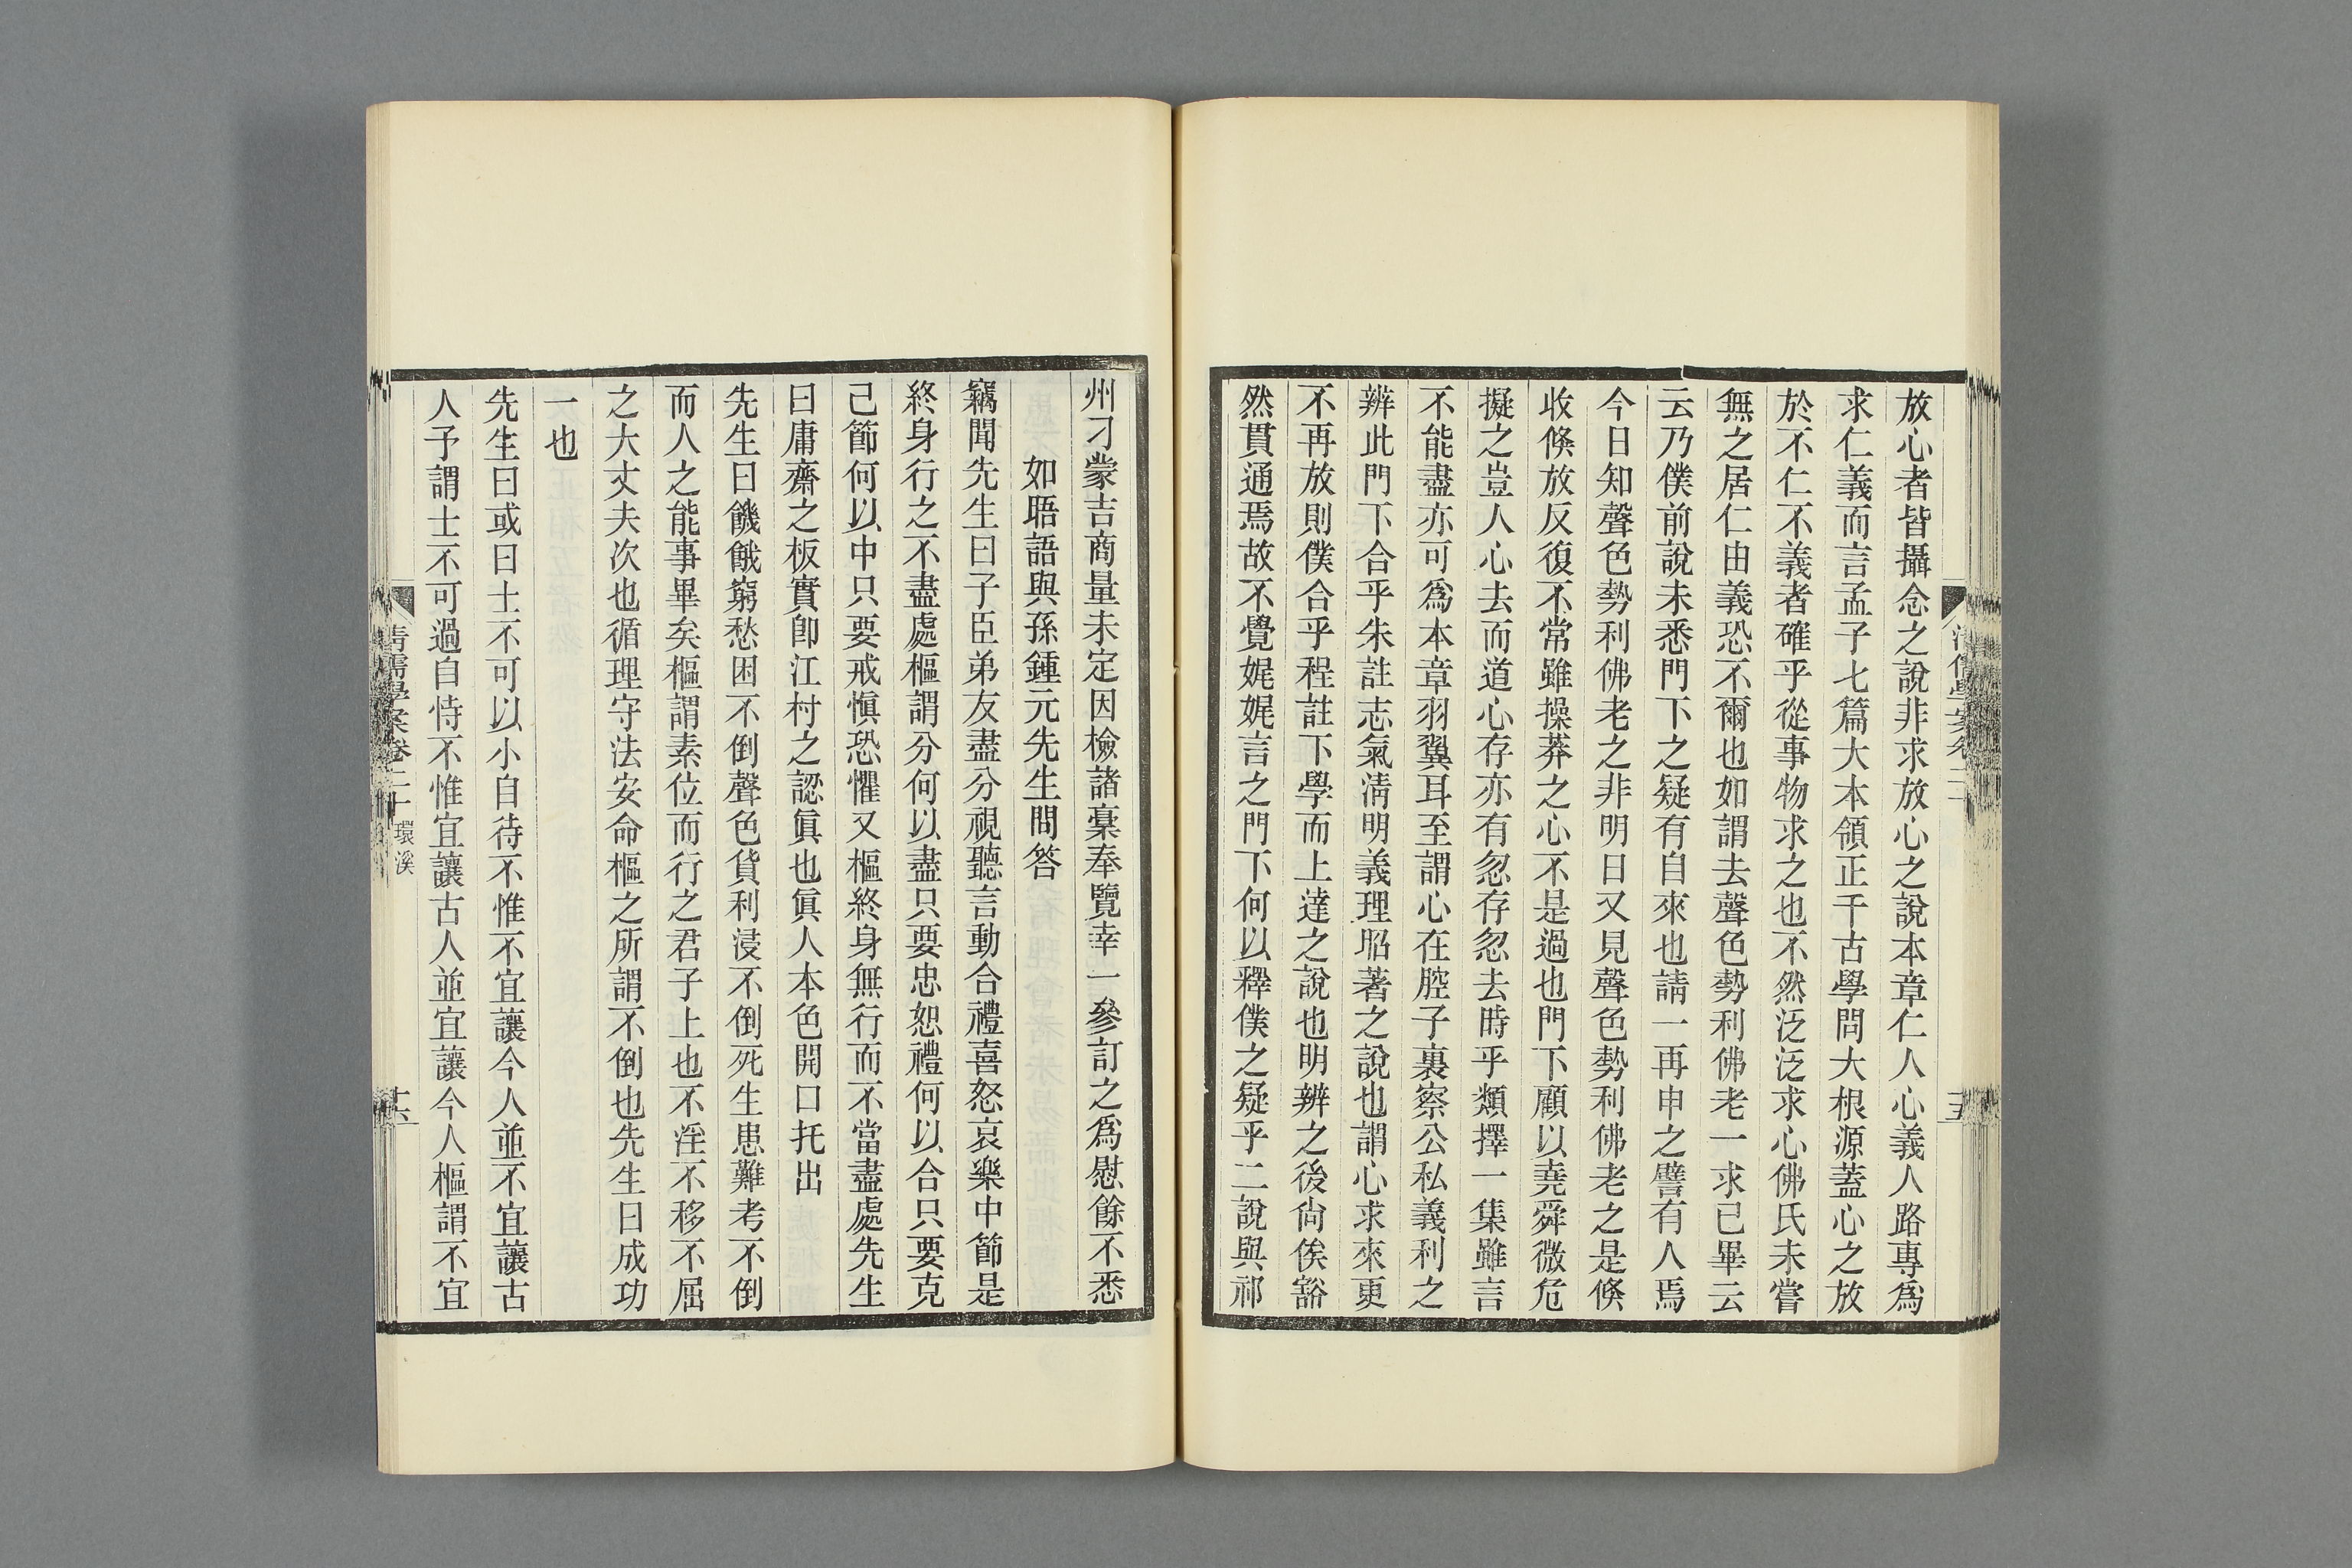 放心者皆攝念之說非求放心之說本章仁人心義人路專爲
求仁義而言孟子七篇大本領正千古學問大根源蓋心之放
於不仁不義者確乎從事物求之也不然泛泛求心佛氏未嘗
無之居仁由義恐不爾也如謂去聲色勢利佛老一求已畢云
云乃僕前說未悉門下之疑有自來也請一再申之譬有人焉
今日知聲色勢利佛老之非明日又見聲色勢利佛老之是倏
收倏放反復不常雖操莽之心不是過也門下顧以堯舜微危
擬之豈人心去而道心存亦有忽存忽去時乎類擇一集雖言
不能盡亦可爲本章羽翼耳至謂心在腔子裏察公私義利之
辨此門下合乎朱註志氣淸明義理昭著之說也謂心求來更
不再放則僕合乎程註下學而上達之說也明辨之後尙俟豁
然貫通焉故不覺娓娓言之門下何以釋僕之疑乎二說與祁
州刁蒙吉商量未定因檢諸槀奉覽幸一參訂之爲慰餘不悉
如晤語與孫鍾元先生問答
竊聞先生曰子臣弟友盡分視聽言動合禮喜怒哀樂中節是
終身行之不盡處樞謂分何以盡只要忠恕禮何以合只要克
己節何以中只要戒愼恐懼又樞終身無行而不當盡處先生
曰庸齋之板實卽江村之認眞也眞人本色開口托出
先生曰饑餓窮愁困不倒聲色貨利浸不倒死生患難考不倒
而人之能事畢矣樞謂素位而行之君子上也不淫不移不屈
之大丈夫次也循理守法安命樞之所謂不倒也先生曰成功
一也
先生曰或曰士不可以小自待不惟不宜讓今人並不宜讓古
人予謂士不可過自恃不惟宜讓古人並宜讓今人樞謂不宜
清儒學案卷二十 環溪
十六